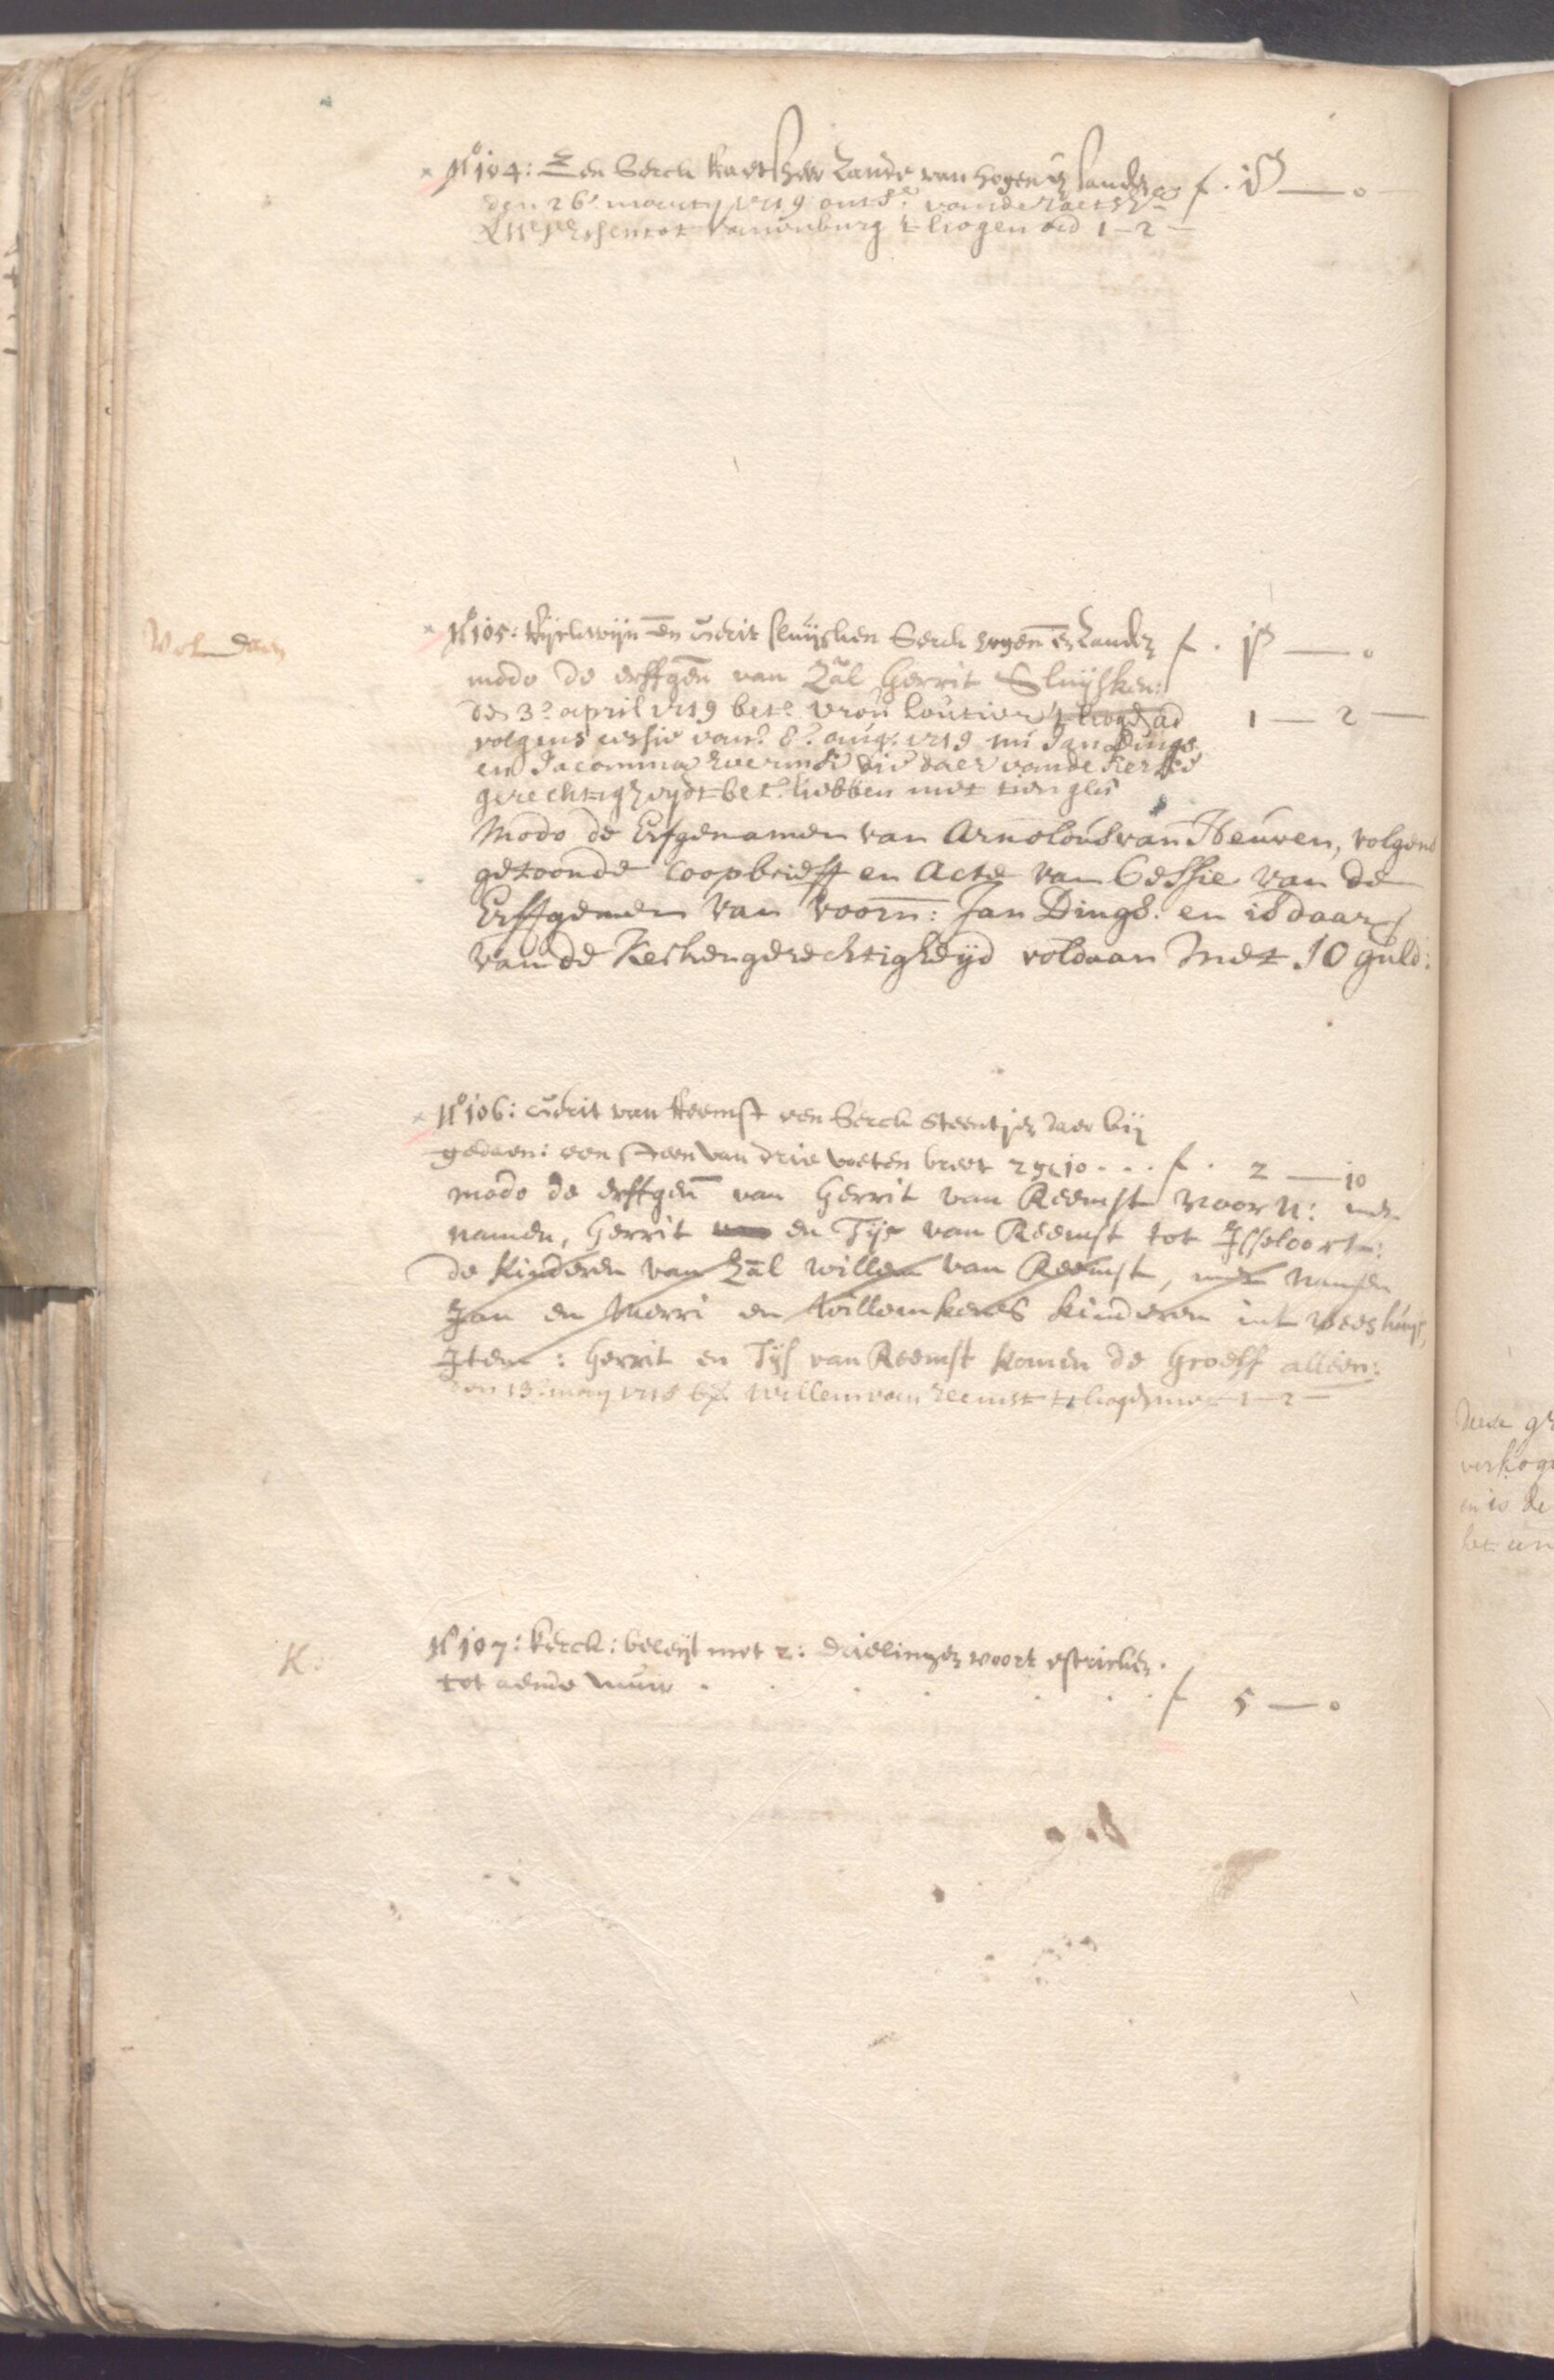 No 104: Een Serck Raetsheer Zande van hogen en sanden f. i½ — 0
den 26. maerty 1719 ontf. van de raetsh.
tot vanenburg t hogen ad 1 — 2 —
Voldaen
No 105: Rijckwijn en Gerit sluijsken Serck hogen en Zanden f. i½ — 0
modo de erffgen van Zal Gerrit Sluijsken:
den 3e april 1719 bet. vrou Coutier 't hogen ad 1 — 2 —
volgens cessie van 8 aug. 1719 nu Jan Dings
en Jacomina die daer van de kercke
gerechtigheydt bet. hebben met tien gls
Modo de Erfgenamen van Arnoldus van Heuven, volgens
getoonde Coopbrieff en Acte van Cessie van de
Erffgenamen van voorn: Jan Dings. en is daar
van de Kerkengerechtigheijd voldaan met 10 guld:
No 106: Gerit van Reemst een Serck steentjen daer bij
gedaen: een steen van drie voeten breet 2 gl 10 . . . f. 2 — 10
modo de erffgen van Gerrit van Reemst voorn: met
namen, Gerrit en Tijs van Reemst tot Isseloort:
de kinderen van Zal willem van Reemst, met namen
Jan en Merri en Willemkens kinderen int weeshuijs,
Item: Gerrit en Tijs van Reemst komen de Groeff alleen:
den 13. may 1718 bet. Willem van Reemst 't hogen met 1 — 2 —
K:
No 107: Kerck: beleijt met 2: drielingen voort estricken.
tot aende muir . . . . . . f 5 — 0
Dese
verkog
en is de
het